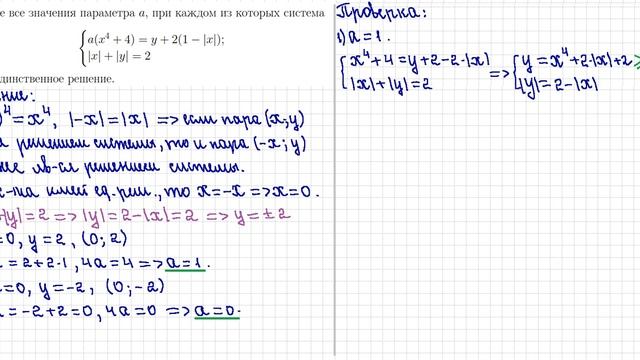 е все значения параметра a, при каждом из которых система
a(x⁴ + 4) = y + 2(1 − |x|);
|x| + |y| = 2
динственное решение.
ение:
)⁴=x⁴, |-x|=|x| => если пара (x;y)
решением системы, то и пара (-x;y)
же яв-ся решением системы.
с-ма имеет ед. реш., то x=-x => x=0.
+|y|=2 => |y|=2-|x|=2 => y=±2
=0, y=2, (0;2)
=2+2·1, 4a=4 => a=1.
=0, y=-2, (0;-2)
=-2+2=0, 4a=0 => a=0.
Проверка:
1) a=1.
x⁴+4=y+2-2·|x|
|x|+|y|=2
=> y=x⁴+2·|x|+2≥
|y|=2-|x|